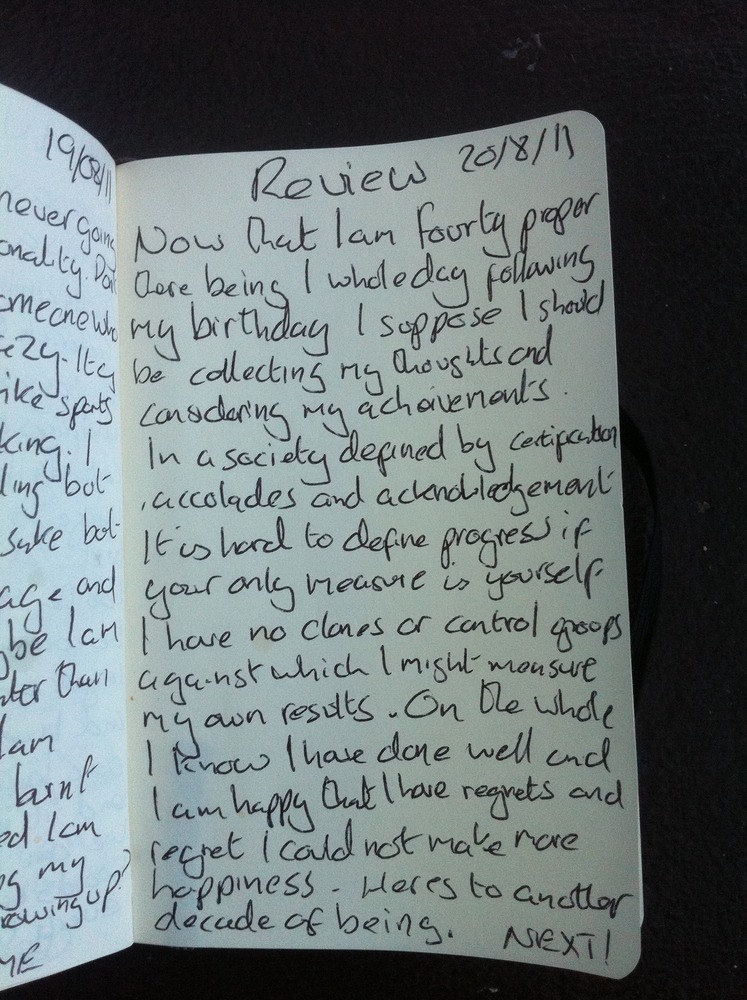 19/08/11
never going
onality. Don't
omeone who
ezy. Its
ike sports
king. I
ling but
sake but
age and
be I am
ter than
I am
burnt
ed I am
g my
rowing up?
ME
Review 20/8/11
Now that I am fourty proper
there being 1 whole day following
my birthday I suppose I should
be collecting my thoughts and
considering my acheivements.
In a society defined by certification
, accolades and acknowledgement
It is hard to define progress if
your only measure is yourself
I have no clones or control groups
against which I might measure
my own results. On the whole
I know I have done well and
I am happy that I have regrets and
regret I could not make more
happiness - Heres to another
decade of being.
NEXT!